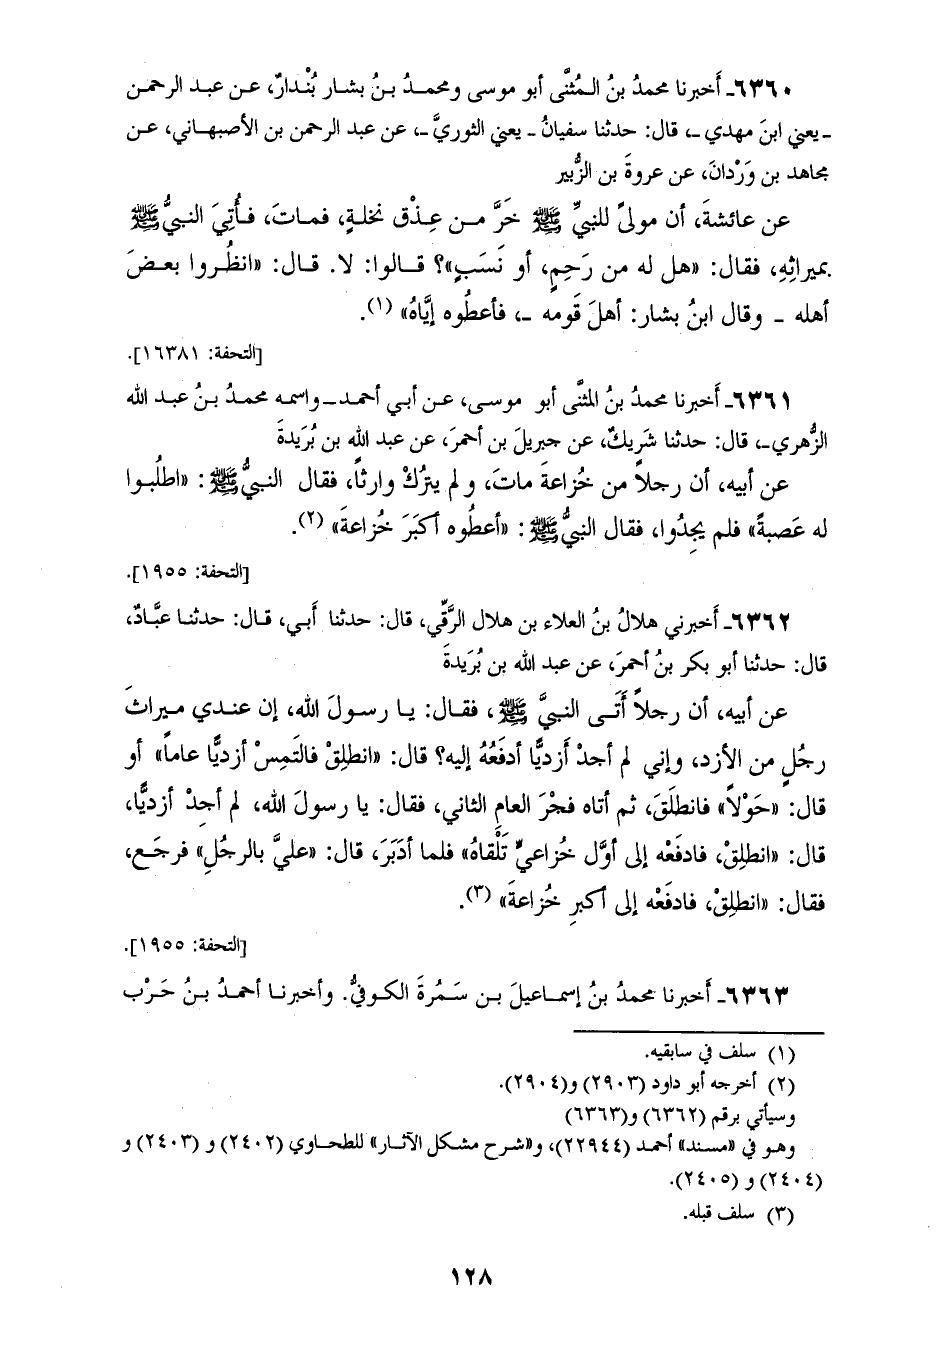 ٦٣٦٠ـ أَخبرنا محمدُ بنُ الـمُثنَّى أبو موسى ومحمـدُ بـنُ بشار بُنْدارٌ، عـن عبـد الرحمـن
ـ يعني ابنَ مهدي ـ، قال: حدثنا سفيانُ ـ يعني الثوريَّ ـ، عن عبد الرحمن بن الأصبهـاني، عـن
مجاهد بن وَرْدانَ، عن عروةَ بن الزُّبير
عن عائشةَ، أن مولىً للنبيِّ ﷺ خَرَّ مـن عِذْق نخلـةٍ، فمـاتَ، فـأُتِيَ النبيُّ ﷺ
بميراثِهِ، فقال: «هل له من رَحِمٍ، أو نَسَبٍ»؟ قـالوا: لا. قـال: «انظُروا بعـضَ
أهله ـ وقال ابنُ بشار: أهلَ قَومه ـ، فأعطُوه إيَّاهُ» (١).
[التحفة: ١٦٣٨١].
٦٣٦١ـ أَخبرنا محمدُ بنُ المثنَّى أبو موسى، عـن أبـي أحمـد ـ واسمـه محمـدُ بـنُ عبـد الله
الزُّهري ـ، قال: حدثنا شَريكٌ، عن جبريلَ بن أحمرَ، عن عبد الله بن بُرَيدةَ
عن أبيه، أن رجلاً من خُزاعةَ ماتَ، ولم يترُكْ وارثاً، فقال النبيُّ ﷺ: «اطلُبـوا
له عَصبةً» فلم يجِدُوا، فقال النبيُّ ﷺ: «أعطُوه أكبَرَ خُزاعةَ» (٢).
[التحفة: ١٩٥٥].
٦٣٦٢ـ أَخبرني هلالُ بنُ العلاء بن هلال الرَّقِّي، قال: حدثنا أَبي، قـال: حدثنـا عبَّـادٌ،
قال: حدثنا أبو بكر بنُ أحمرَ، عن عبد الله بن بُرَيدةَ
عن أبيه، أن رجلاً أَتَـى النبيَّ ﷺ، فقـال: يـا رسـولَ الله، إن عنـدي ميـراثَ
رجُلٍ من الأزد، وإني لم أجدْ أَزديًّا أدفَعُهُ إليه؟ قال: «انطلِقْ فالتَمِسْ أزديًّا عاماً» أو
قال: «حَوْلاً» فانطلَقَ، ثم أتاه فجْرَ العامِ الثاني، فقال: يا رسولَ الله، لم أجِدْ أزديًّا،
قال: «انطلِقْ، فادفَعْه إلى أوَّل خُزاعيٍّ تَلْقاهُ» فلما أدبَرَ، قال: «عليَّ بالرجُلِ» فرجَـع،
فقال: «انطلِقْ، فادفَعْه إلى أكبرِ خُزاعةَ» (٣).
[التحفة: ١٩٥٥].
٦٣٦٣ـ أَخبرنا محمدُ بنُ إسمـاعيلَ بـن سَـمُرةَ الكـوفيُّ. وأخبرنـا أحمـدُ بـنُ حَـرْب
(١) سلف في سابقيه.
(٢) أخرجه أبو داود (٢٩٠٣) و(٢٩٠٤).
وسيأتي برقم (٦٣٦٢) و(٦٣٦٣)
وهـو في «مسند» أحمد (٢٢٩٤٤)، و«شرح مشكل الآثـار» للطحاوي (٢٤٠٢) و (٢٤٠٣) و
(٢٤٠٤) و (٢٤٠٥).
(٣) سلف قبله.
١٢٨